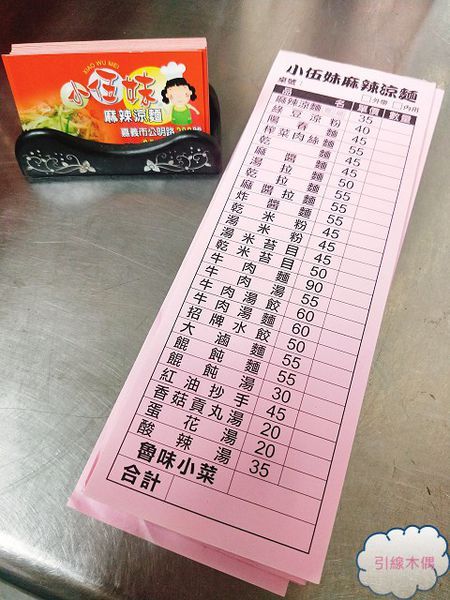 XIAO WU MEI
小伍妹
麻辣涼麵
嘉義市公明路
小伍妹麻辣涼麵
桌號: □外帶 □內用
品名 單價 數量
麻辣涼麵 35
綠豆涼粉 40
陽春麵 45
榨菜肉絲麵 55
麻醬麵 45
乾拉麵 45
湯拉麵 50
麻醬拉麵 55
炸醬麵 55
乾米粉 45
湯米粉 45
湯米苔目 45
乾米苔目 50
牛肉麵 90
牛肉湯 55
牛肉湯餃 60
牛肉湯麵 60
招牌水餃 50
大滷麵 55
餛飩麵 55
餛飩湯 30
紅油抄手 45
香菇貢丸湯 20
蛋花湯 20
酸辣湯 35
魯味小菜
合計
引線木偶